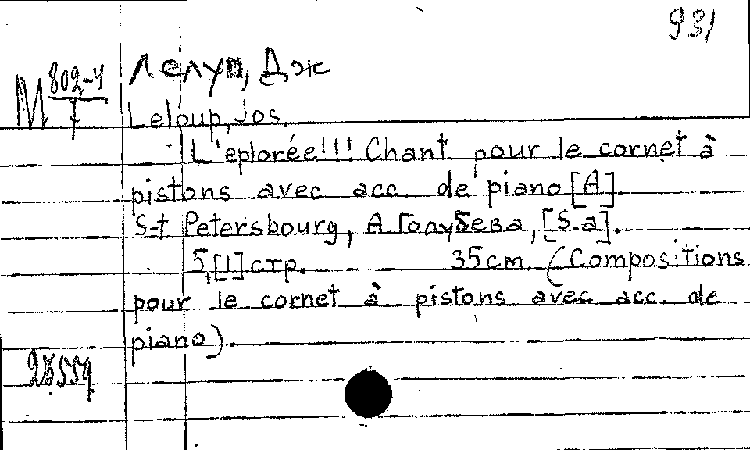 931
М 802-4
Г
Лелуп, Дж
Leloup, Jos.
L'eplorée!!! Chant pour le cornet à
pistons avec acc. de piano [A].
S-t Petersbourg, А Голубева, [S.a].
5,[1] стр. 35 cm (Compositions
pour le cornet à pistons avec acc. de
piano).